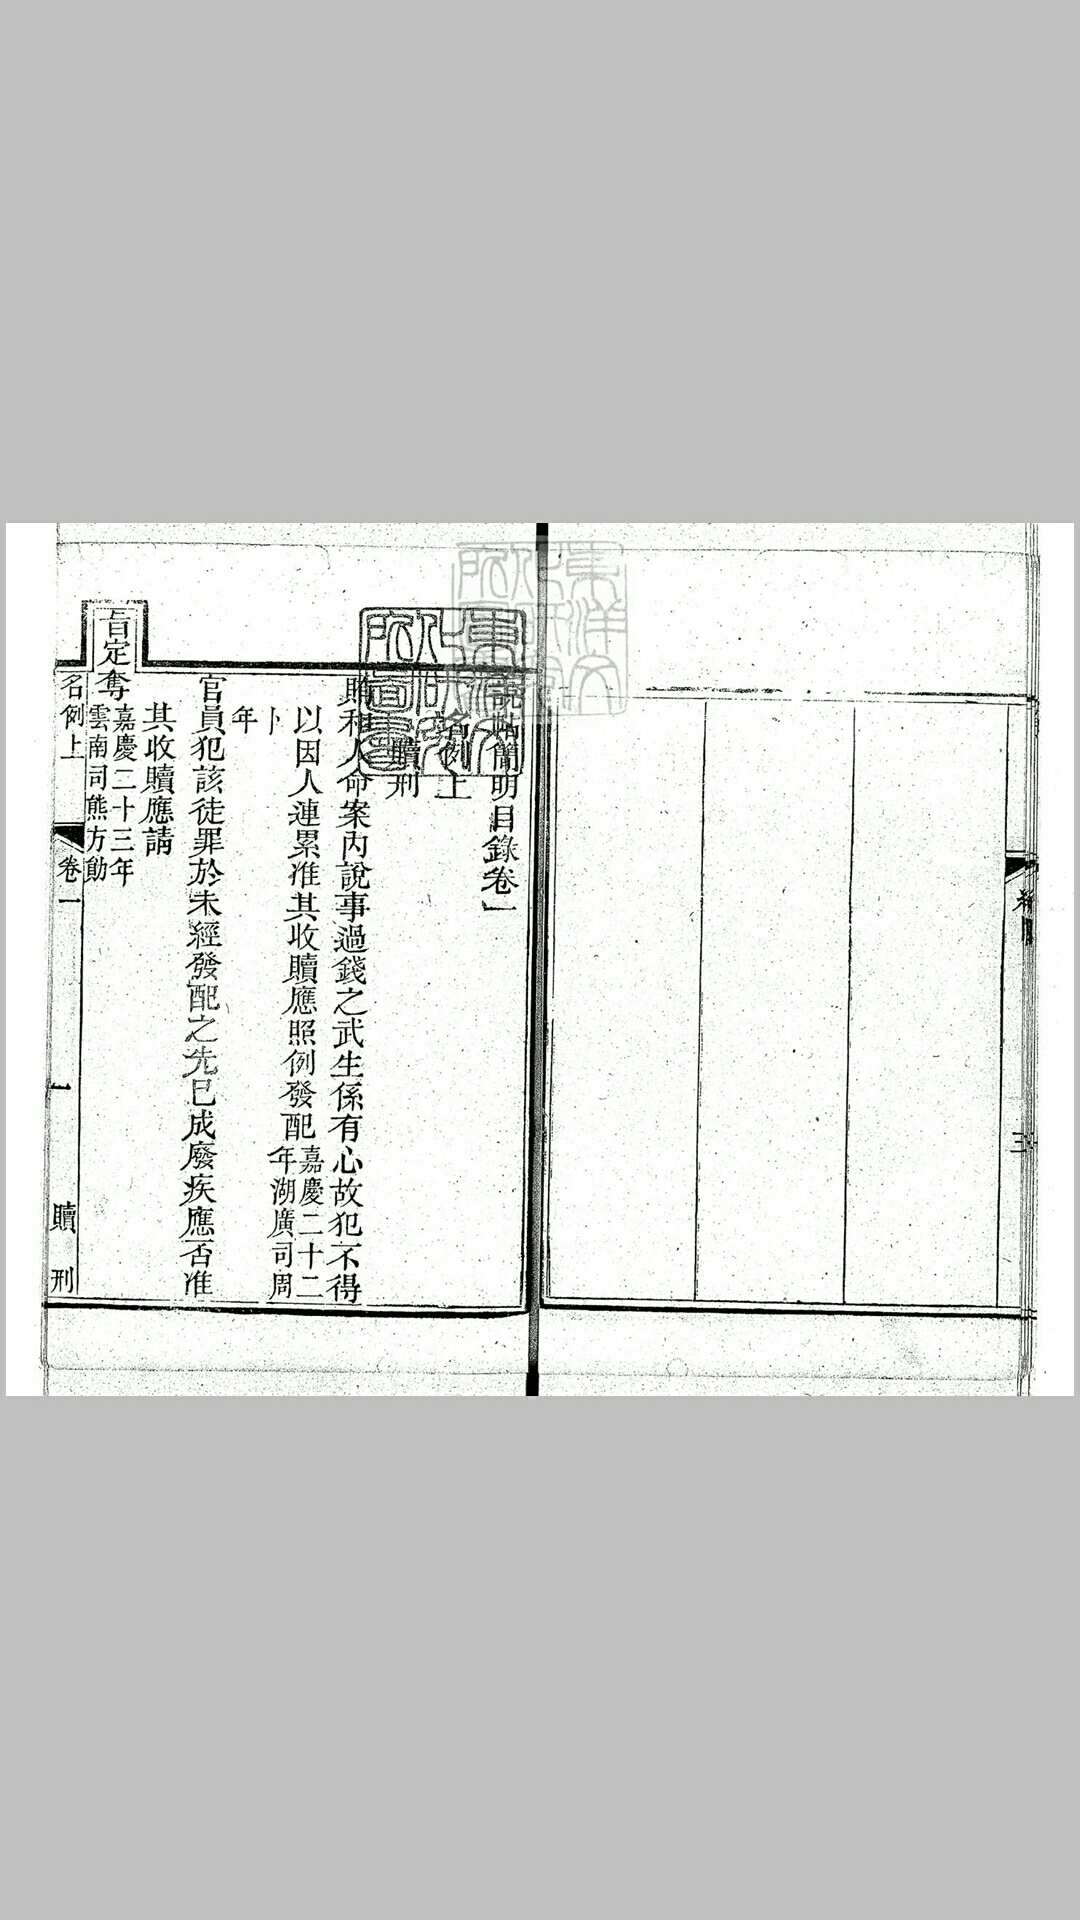 說帖簡明目錄卷一
名例上
贖刑
賄和人命案內說事過錢之武生係有心故犯不得
以因人連累准其收贖應照例發配嘉慶二十二
年湖廣司周
卜
年
官員犯該徒罪於未經發配之先已成廢疾應否准
其收贖應請
旨定奪嘉慶二十三年
雲南司熊方勛
名例上
卷一
一
贖刑
三